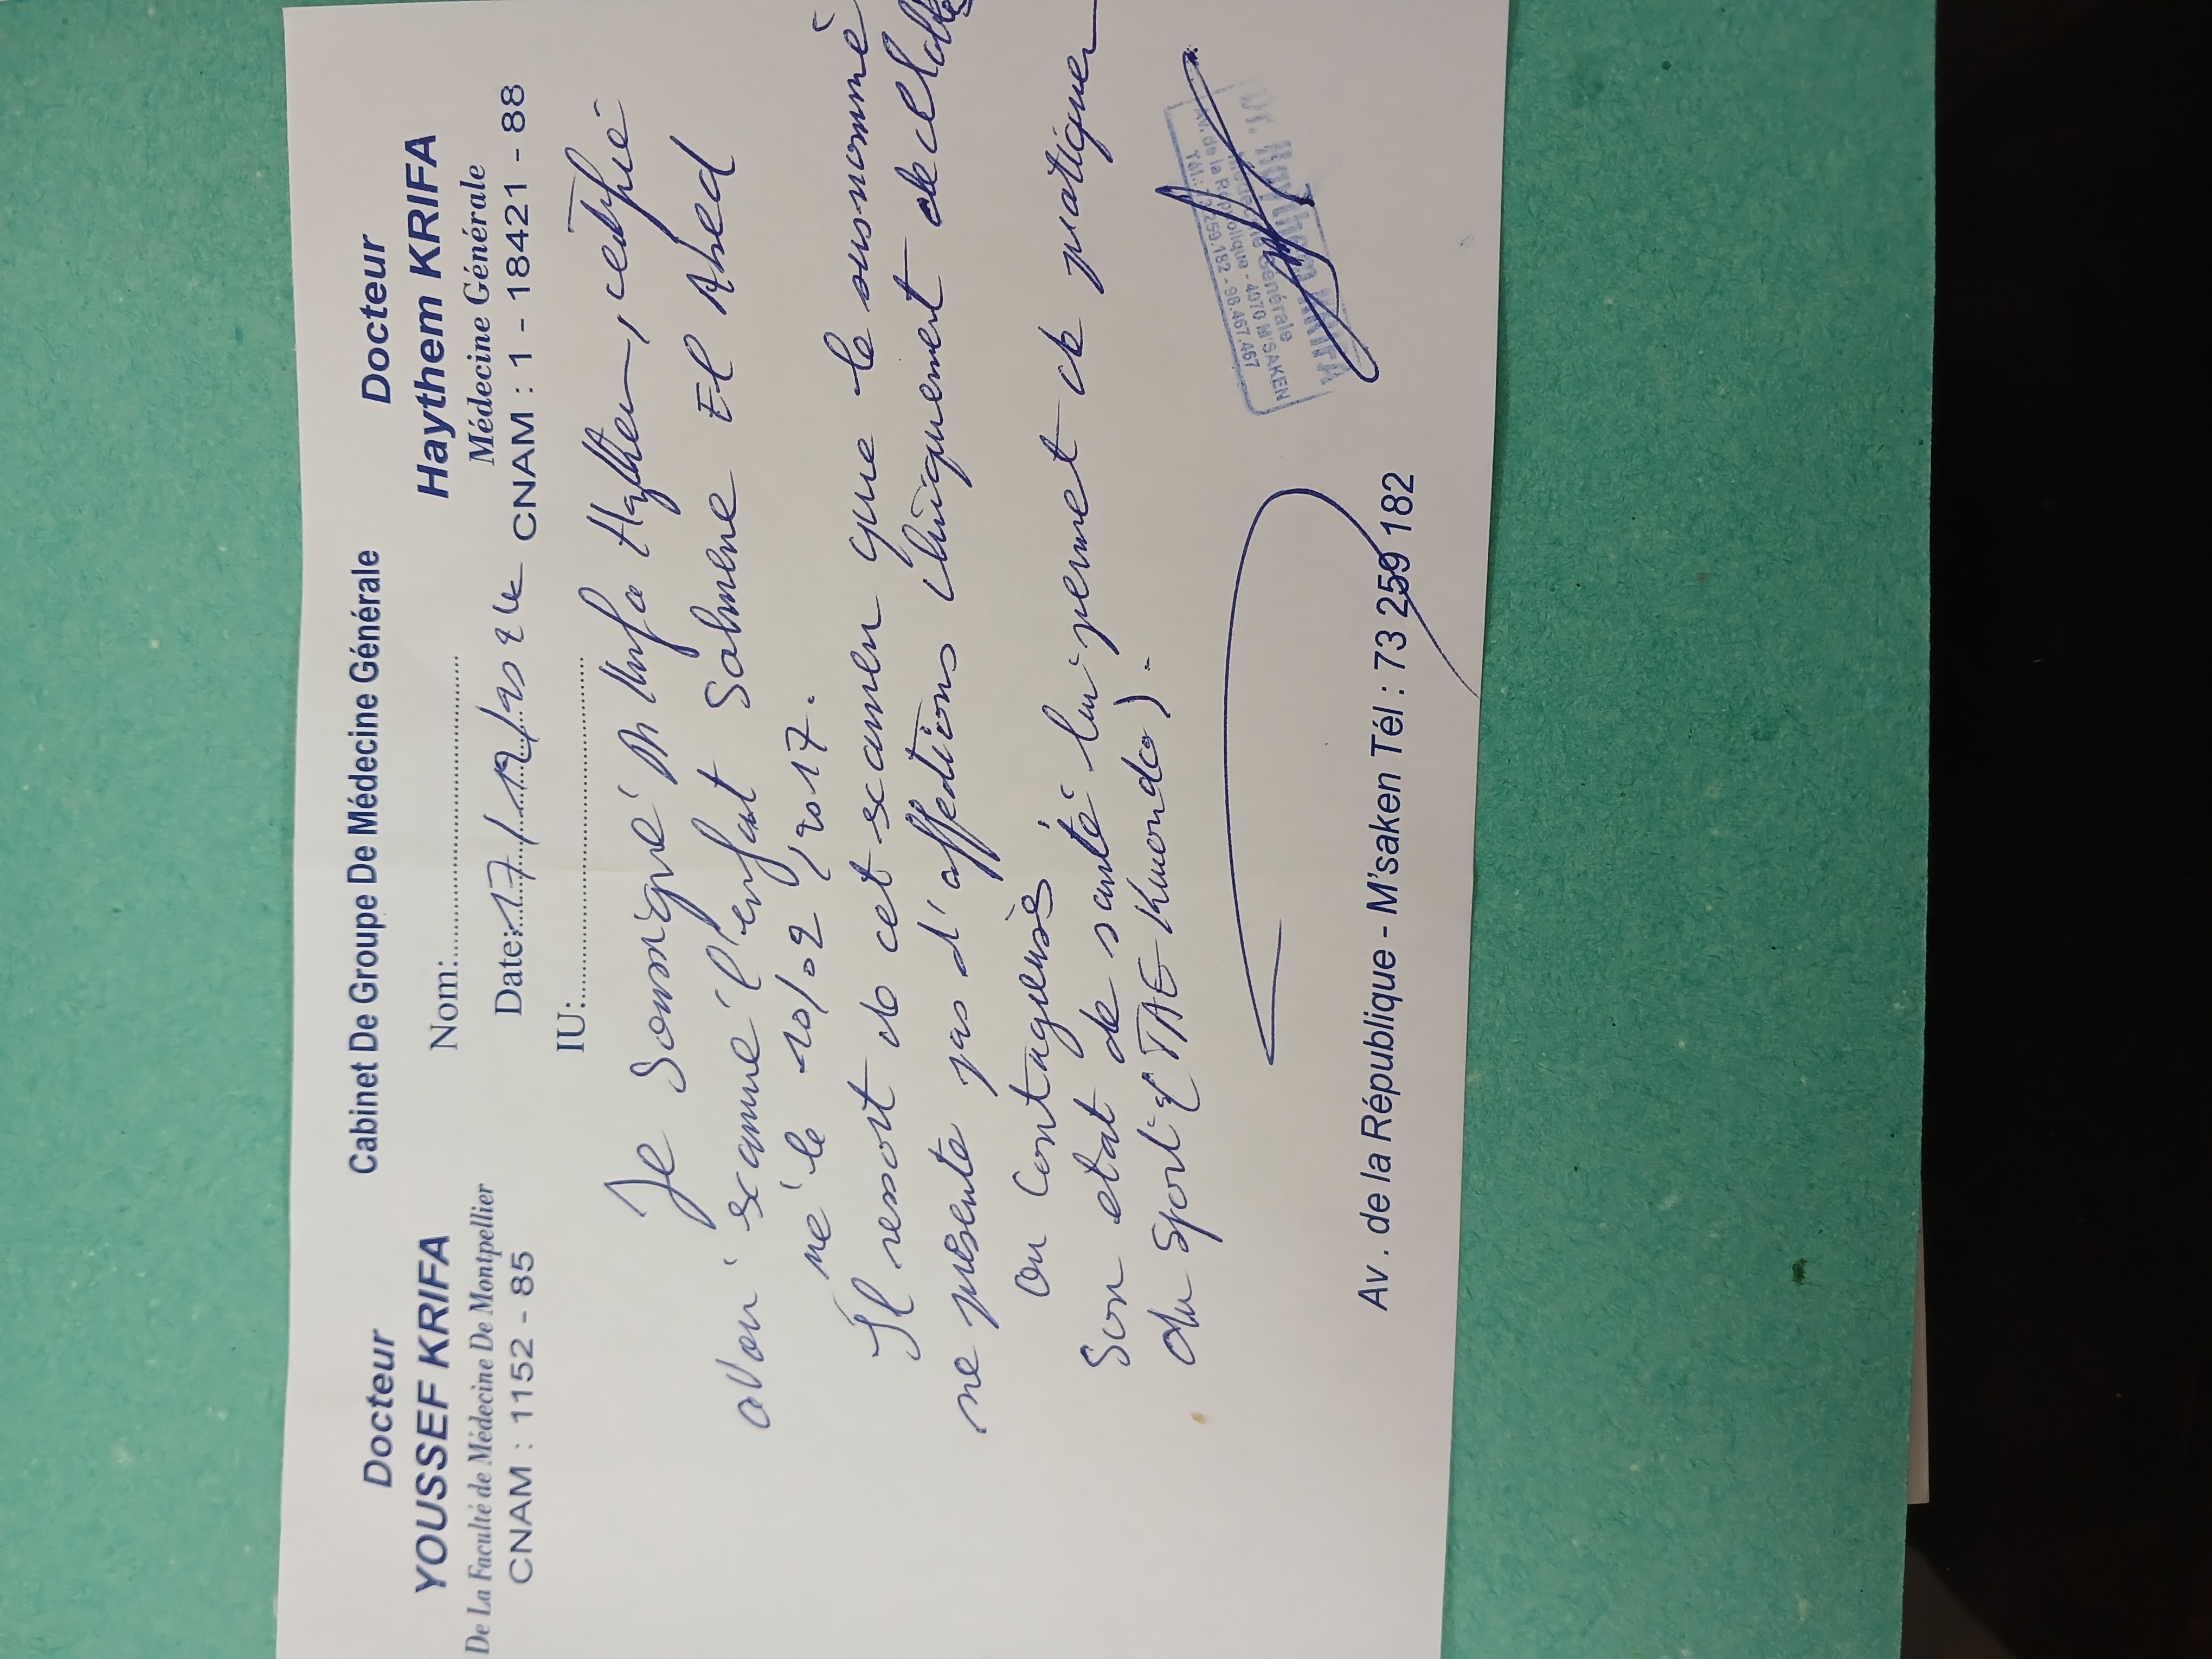 Cabinet De Groupe De Médecine Générale
Docteur
YOUSSEF KRIFA
De La Faculté de Médecine De Montpellier
CNAM : 1152 - 85
Nom:
Date: 17/12/2024
IU:
Docteur
Haythem KRIFA
Médecine Générale
CNAM : 1 - 18421 - 88
Je soussigné Dr Krifa Haythem, certifie
avoir examiné l'enfant Salmene El Ahed
né le 20/02/2017.
Il ressort de cet examen que le susnommé
ne présente pas d'affections cliniquement décelables
ou contagieuses
Son etat de santé lui permet de pratiquer
du Sport (TAEKwondo).
Médecine Générale
Av. de la République - 4070 M'SAKEN
Tél.: 73.259.182 - 98.467.467
Av . de la République - M'saken Tél : 73 259 182